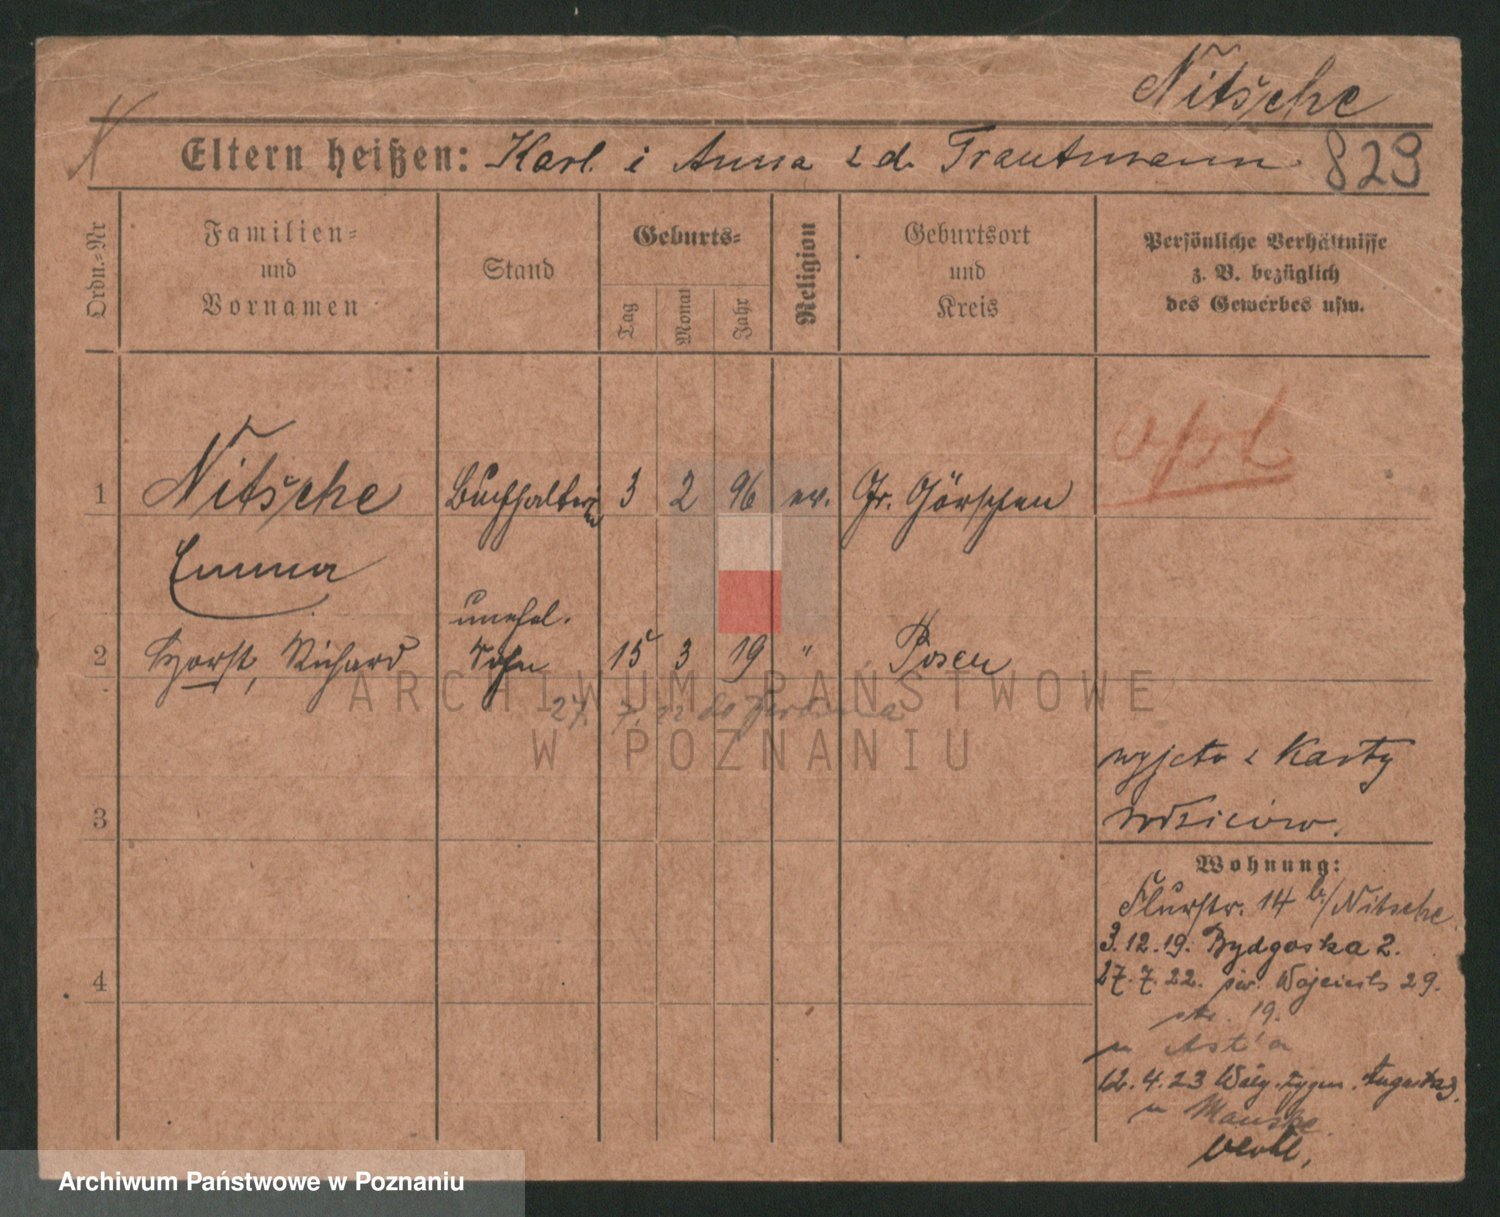 Nitsche
Eltern heißen: Karl i Anna z d. Trautmann 829
Ordn.-Nr
Familien-
und
Vornamen
Stand
Geburts-
Tag
Monat
Jahr
Religion
Geburtsort
und
Kreis
Persönliche Verhältnisse
z. B. bezüglich
des Gewerbes usw.
1 Nitsche Buchhalterin 3 2 96 ev. Gr. Görschen
Emma
unehel.
2 Horst, Richard Sohn 15 3 19 " Posen
27. 7. 22
wyjęto z Karty
rodziców.
3
Wohnung:
Flurstr. 14 b/Nitsche
3.12.19. Bydgoska 2.
27.7.22. św. Wojciech 29.
19.
4
12.4.23
u Manske
ARCHIWUM PAŃSTWOWE
W POZNANIU
Archiwum Państwowe w Poznaniu